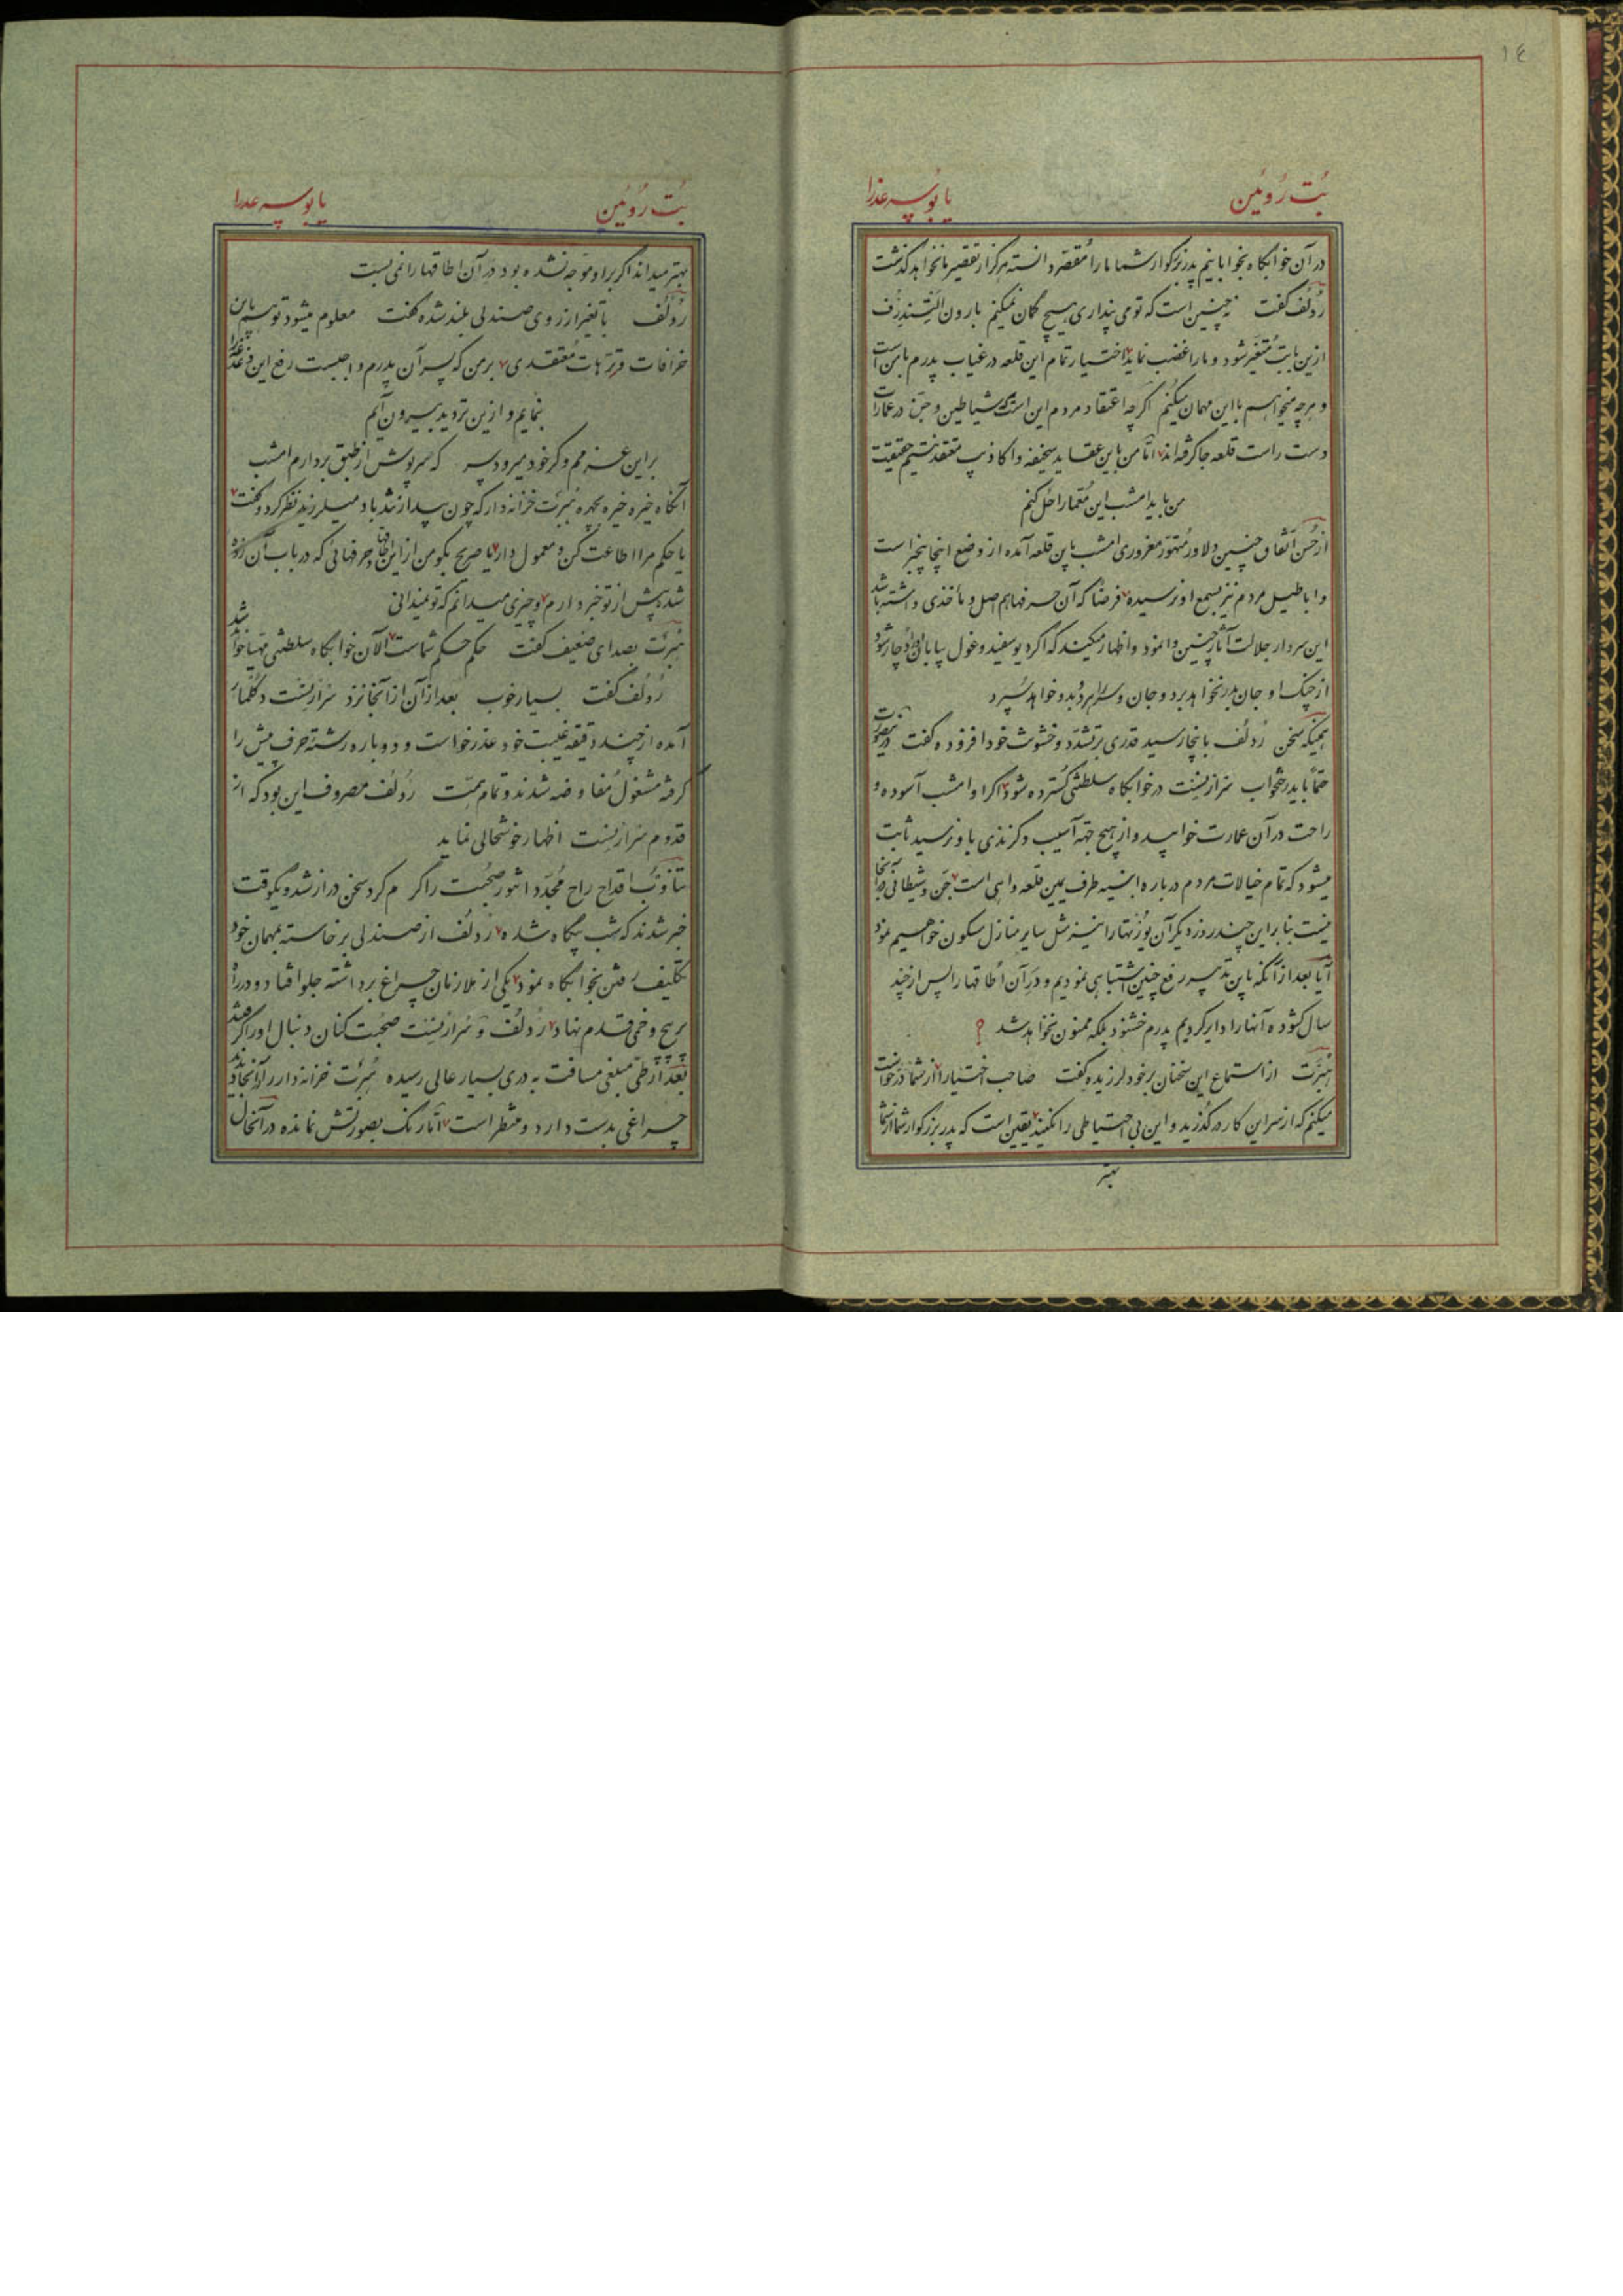 ١٤
بُت رُوئین یا بُوسهٔ عذرا
در آن خوابگاه بخوابانیم پدر بزرگوار شما ما را مُقصّر دانسته هرگز از تقصیر ما نخواهد گذشت
رُدلُف گفت نه چنین است که تو می پنداری هیچ گمان نمیکنم بارون
ازین بابت مُتغیّر شود و ما را غضب نماید اختیار تمام این قلعه در غیاب پدرم با من است
و هرچه میخواهم با این مهمان میکنم اگرچه اعتقاد مردم این است که شیاطین و جن در عمارات
دست راست قلعه جا گرفته اند امّا من باین عقاید سخیفه و اکاذیب معتقد نیستم حقیقت
من باید امشب این مُعمّا را حل کنم
از حُسن اتفاق چنین دلاور مُتهوّر مغروری امشب باین قلعه آمده از وضع اینجا بیخبر است
و اباطیل مردم نیز بسمع او نرسیده فرضاً که آن حرفها هم اصل و مأخذی داشته باشد
این سردار جلالت آثار چنین وانمود و اظهار میکند که اگر دیو سفید و غول بیابان او را دچار شود
از چنگ او جان بدر نخواهد برد و جان و سر بدو خواهد سپرد
همینکه سخن رُدلُف باینجا رسید قدری بر تشدّد و خشونت خود افزوده گفت در اینصورت
حتماً باید رختخواب در خوابگاه سلطنتی گسترده شود اگر او امشب آسوده و
راحت در آن عمارت خوابید و از هیچ جهة آسیب و گزندی باو نرسید ثابت
میشود که تمام خیالات مردم درباره ابنیه طرف یمین قلعه واهی است جن و شیطانی در آنجا
نیست بنا براین چند روز دیگر آن را نیز مثل سایر منازل مسکون خواهیم نمود
آیا بعد از آنکه باین تدبیر رفع چنین اشتباهی نمودیم و در آن اُطاقها را پس از چند
سال گشوده آنها را دایر کردیم پدرم خشنود بلکه ممنون نخواهد شد ؟
هُبرت از استماع این سخنان بر خود لرزیده گفت صاحب اختیارا از شما درخواست
میکنم که از سر این کار درگذرید و این بی احتیاطی را نکنید یقین است که پدر بزرگوار شما از شما
بهتر
بُت رُوئین یا بوسهٔ عذرا
بهتر میداند اگر بر او موجّه نشده بود در آن اطاقها را نمی بست
رُدلُف با تغیّر از روی صندلی بلند شده گفت معلوم میشود تو هم باین
خرافات و ترّهات مُعتقدی بر من که پسر آن پدرم واجبست رفع این
بنمایم و ازین تردید بیرون آیم
بر این عزمم و گر خود میرود سر که سرپوش از طبق بردارم امشب
آنگاه خیره خیره بچهره هُبرت خزانه دار که چون بید از تندباد میلرزید نظر کرد و گفت
یا حکم مرا اطاعت کن و معمول دار یا صریح بگو من از این اطاقها و حرفهائی که در باب آن زده
شده بیش از تو خبر دارم و چیزی میدانم که تو نمیدانی
هُبرت بصدای ضعیف گفت حکم حکم شماست الآن خوابگاه سلطنتی مهیّا خواهد شد
رُدلُف گفت بسیار خوب بعد از آن از آنجا نزد
آمده از چند دقیقه غیبت خود عذر خواست و دوباره رشتهٔ حرف پیش را
گرفته مشغول مُفاوضه شدند و تمام همّت رُدلُف مصروف این بود که از
قدوم اظهار خوشحالی نماید
تناوُب اقداح راح مُجدّداً شور صُحبت را گرم کرد سخن دراز شد و یکوقت
خبر شدند که شب بیگاه شده رُدلُف از صندلی برخاسته بمهمان خود
تکلیف رفتن بخوابگاه نمود یکی از ملازمان چراغ برداشته جلو افتاد و در راه
پر پیچ و خمی قدم نهاد رُدلُف و صُحبت کنان دنبال او را گرفتند
بعد از طی مبلغی مسافت به دری بسیار عالی رسیده هُبرت خزانه دار را در آنجا دیدند
چراغی بدست دارد و منتظر است امّا رنگ بصورتش نمانده در آنحال